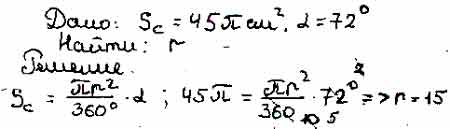 Дано: Sc = 45π см², α = 72°
Найти: r
Решение.
Sc = πr²/360° · α ; 45π = πr²/360 · 72° => r = 15